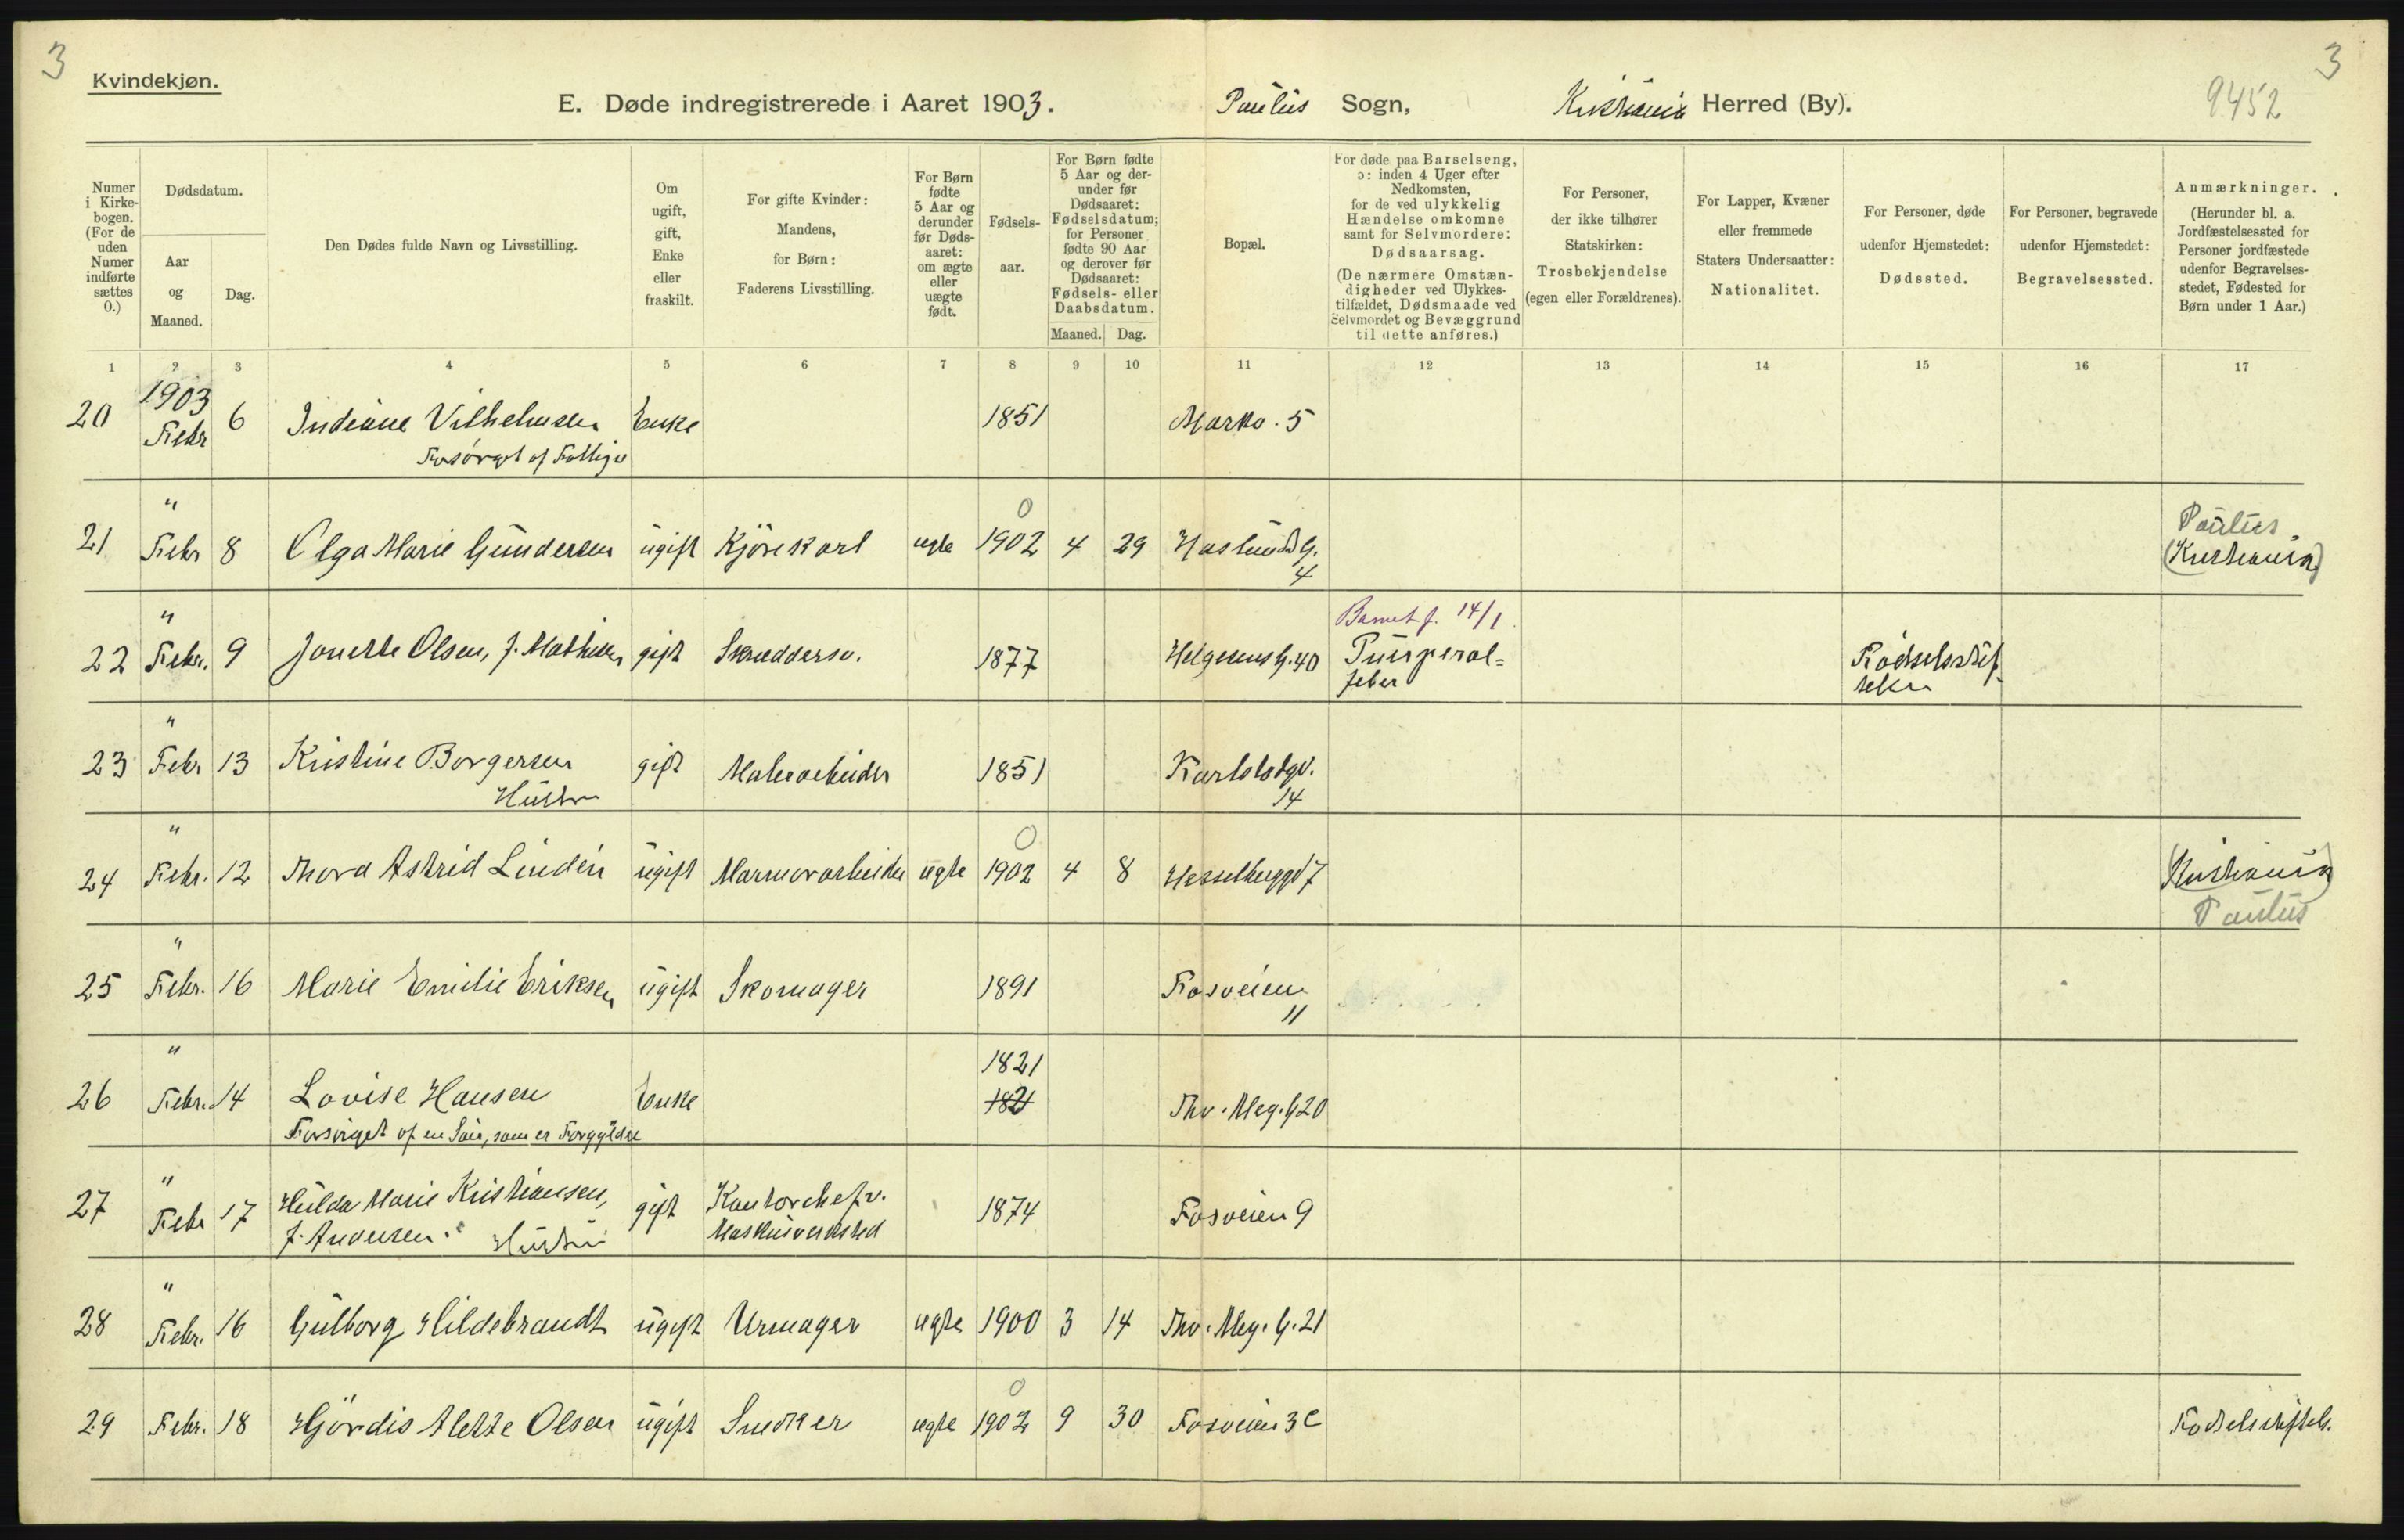 3
3
Kvindekjøn.
E. Døde indregistrerede i Aaret 1903. Paulus Sogn, Kristiania Herred (By).
9452
Numer i Kirke- bogen. (For de uden Numer indførte sættes 0.)
Dødsdatum.
Aar og Maaned.
Dag.
Den Dødes fulde Navn og Livsstilling.
Om ugift, gift, Enke eller fraskilt.
For gifte Kvinder: Mandens, for Børn: Faderens Livsstilling.
For Børn fødte 5 Aar og derunder før Døds- aaret: om ægte eller uægte født.
Fødsels- aar.
For Børn fødte 5 Aar og der- under før Dødsaaret: Fødselsdatum; for Personer fødte 90 Aar og derover før Dødsaaret: Fødsels- eller Daabsdatum.
Maaned. Dag.
Bopæl.
For døde paa Barselseng, ɔ: inden 4 Uger efter Nedkomsten, for de ved ulykkelig Hændelse omkomne samt for Selvmordere: Dødsaarsag. (De nærmere Omstæn- digheder ved Ulykkes- tilfældet, Dødsmaade ved Selvmordet og Bevæggrund til dette anføres.)
For Personer, der ikke tilhører Statskirken: Trosbekjendelse (egen eller Forældrenes).
For Lapper, Kvæner eller fremmede Staters Undersaatter: Nationalitet.
For Personer, døde udenfor Hjemstedet: Dødssted.
For Personer, begravede udenfor Hjemstedet: Begravelsessted.
Anmærkninger. (Herunder bl. a. Jordfæstelsessted for Personer jordfæstede udenfor Begravelses- stedet, Fødested for Børn under 1 Aar.)
1 2 3 4 5 6 7 8 9 10 11 12 13 14 15 16 17
1903
20 Febr 6 Indiane Vilhelmsen Enke 1851 Markv. 5
Forsørget af Fattigv
"
0
Paulus
21 Febr 8 Olga Marie Gundersen ugift Kjørekarl ægte 1902 4 29 Haslunds G. (Kristiania)
4
"
Barnet f. 14/1.
22 Febr. 9 Jonette Olsen, f. Mathisen gift Skræddersv. 1877 Helgesens G. 40 Puerperal= Fødselsstif-
feber telsen
"
23 Febr 13 Kristine Borgersen gift Malerarbeider 1851 Karlstadgd.
Hustru 14
"
0
24 Febr. 12 Thora Astrid Lindén ugift Marmorarbeider ægte 1902 4 8 Hesselberggd 7 (Kristiania)
Paulus
"
25 Febr. 16 Marie Emilie Eriksen ugift Skomager 1891 Fosveien
11
"
1821
26 Febr. 14 Lovise Hansen Enke 182 Thv. Meg. G 20
Forsørget af en Søn, som er Forgylder
"
27 Febr 17 Hulda Marie Kristiansen, gift Kontorchef v. 1874 Fosveien 9
f. Andersen. Hustru Maskinverksted
"
28 Febr. 16 Gulborg Hildebrandt ugift Urmager ægte 1900 3 14 Thv. Meg. G. 21
0
29 Febr. 18 Hjördis Alette Olsen ugift Snedker ægte 1902 9 30 Fosveien 3c Fødselsstiftels.